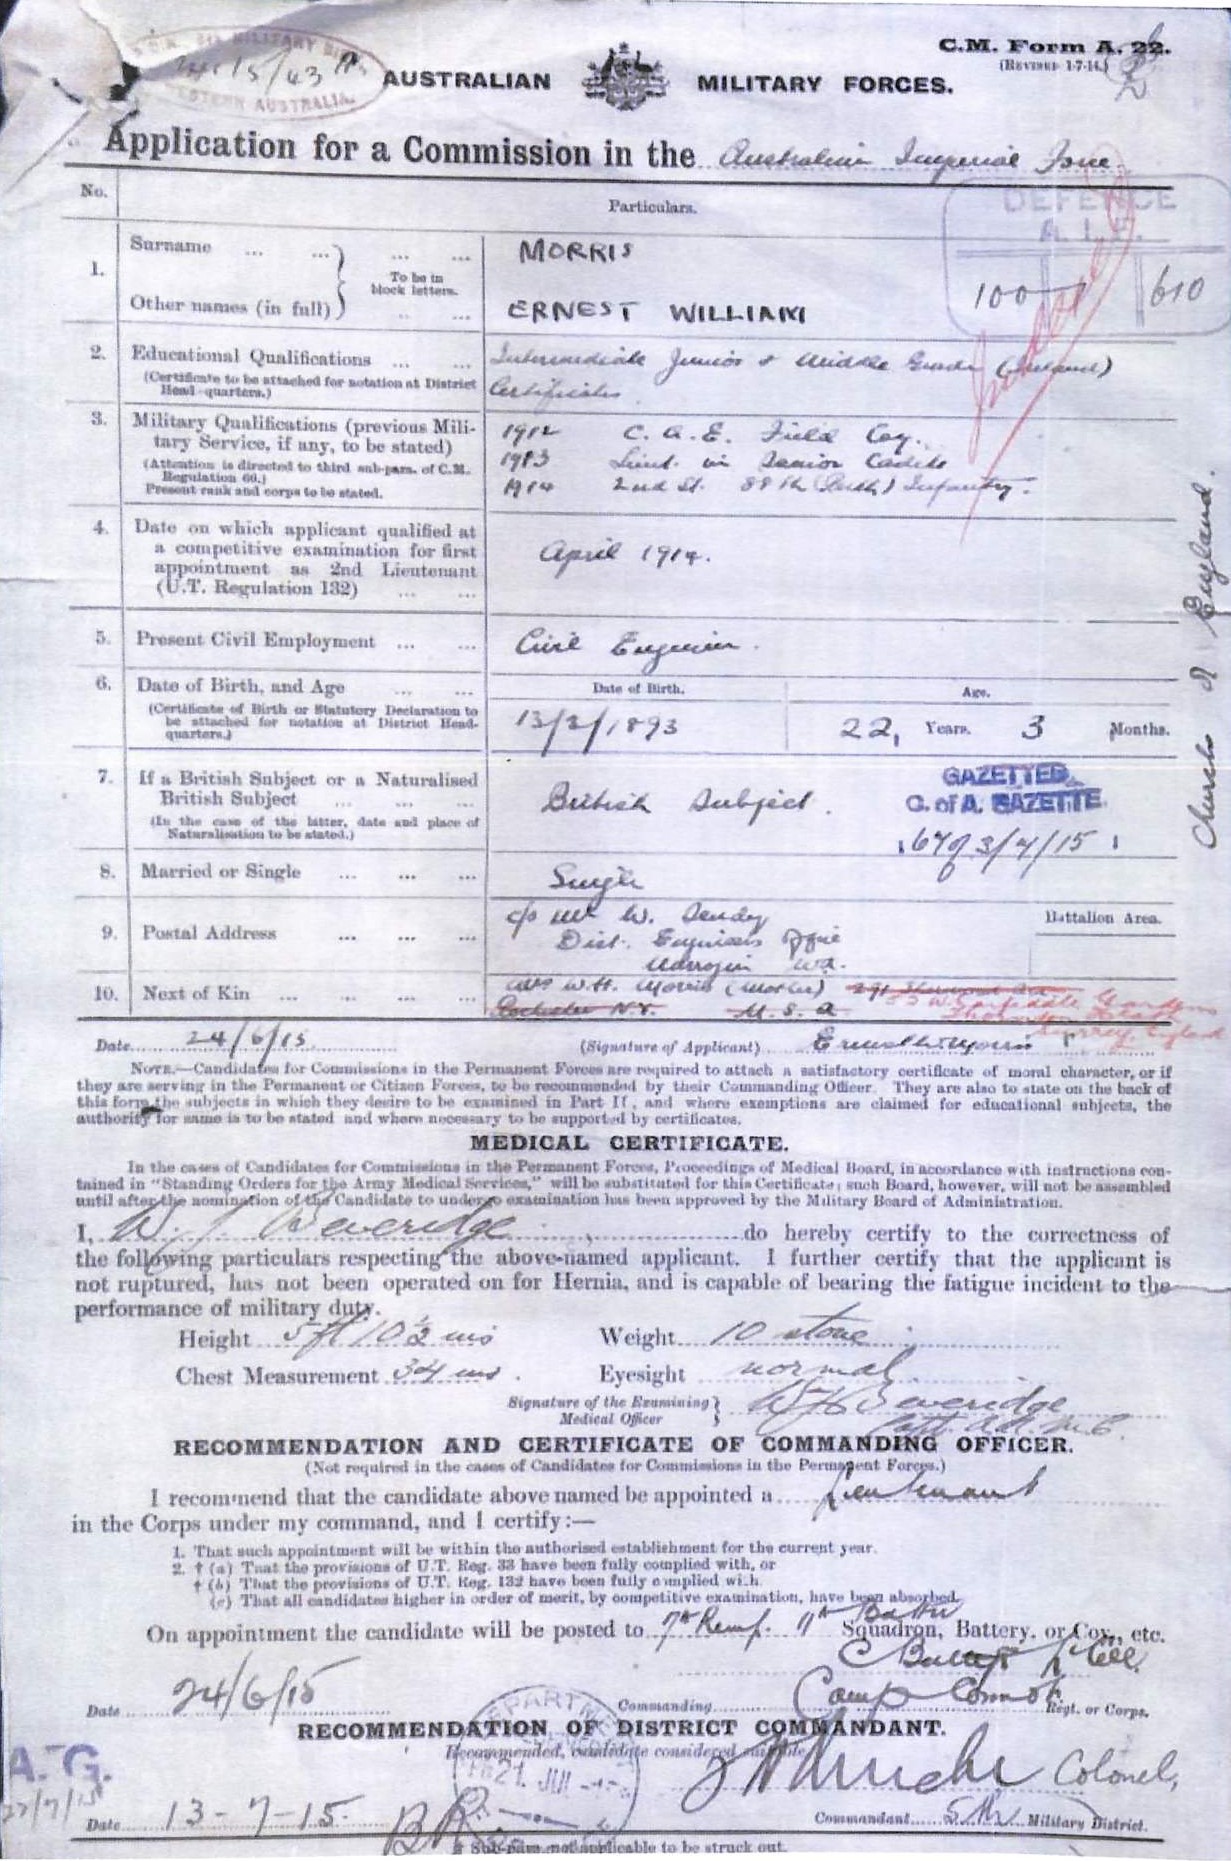 C.M. Form A. 22.
(REVISED 1-7-14.)
24/5/43
WESTERN AUSTRALIA.
AUSTRALIAN MILITARY FORCES.
Application for a Commission in the Australian Imperial Force.
No. Particulars.
DEFENCE
A.I.F.
100 610
1. Surname ... ... ... ... MORRIS
To be in block letters.
Other names (in full) ... ... ERNEST WILLIAM
2. Educational Qualifications ... ... Intermediate Junior & Middle Grade (Ireland)
(Certificate to be attached for notation at District Head-quarters.) Certificates
3. Military Qualifications (previous Mili- 1912 C.A.E. Field Coy.
tary Service, if any, to be stated) 1913 Lieut. in Senior Cadets
(Attention is directed to third sub-para. of C.M. Regulation 60.)
Present rank and corps to be stated. 1914 2nd Lt. 88th (Perth) Infantry.
4. Date on which applicant qualified at
a competitive examination for first
appointment as 2nd Lieutenant April 1914.
(U.T. Regulation 132) ... ...
5. Present Civil Employment ... ... Civil Engineer.
6. Date of Birth, and Age ... ... Date of Birth. Age.
(Certificate of Birth or Statutory Declaration to
be attached for notation at District Head-
quarters.) 13/3/1893 22, Years. 3 Months.
7. If a British Subject or a Naturalised
British Subject ... ... ... British Subject.
(In the case of the latter, date and place of
Naturalisation to be stated.)
GAZETTED
C. of A. GAZETTE
Church of England.
8. Married or Single ... ... ... Single
9. Postal Address ... ... ... c/o Mr W. Dist. Engineers Office
Narrogin WA.
Battalion Area.
10. Next of Kin ... ... ... ... Mrs W.H. Morris (Mother) 291
Rochester N.Y. U.S.A
Surrey, England
Date 24/6/15 (Signature of Applicant) Ernest W Morris
NOTE.—Candidates for Commissions in the Permanent Forces are required to attach a satisfactory certificate of moral character, or if
they are serving in the Permanent or Citizen Forces, to be recommended by their Commanding Officer. They are also to state on the back of
this form the subjects in which they desire to be examined in Part II, and where exemptions are claimed for educational subjects, the
authority for same is to be stated and where necessary to be supported by certificates.
MEDICAL CERTIFICATE.
In the cases of Candidates for Commissions in the Permanent Forces, Proceedings of Medical Board, in accordance with instructions con-
tained in "Standing Orders for the Army Medical Services," will be substituted for this Certificate; such Board, however, will not be assembled
until after the nomination of the Candidate to undergo examination has been approved by the Military Board of Administration.
I, W. J. Beveridge, do hereby certify to the correctness of
the following particulars respecting the above-named applicant. I further certify that the applicant is
not ruptured, has not been operated on for Hernia, and is capable of bearing the fatigue incident to the
performance of military duty.
Height 5 ft 10 ½ ins Weight 10 stone
Chest Measurement 34 ins. Eyesight normal
Signature of the Examining Medical Officer Beveridge
Capt. A.A.M.C.
RECOMMENDATION AND CERTIFICATE OF COMMANDING OFFICER.
(Not required in the cases of Candidates for Commissions in the Permanent Forces.)
I recommend that the candidate above named be appointed a Lieutenant
in the Corps under my command, and I certify:—
1. That such appointment will be within the authorised establishment for the current year.
2. † (a) That the provisions of U.T. Reg. 33 have been fully complied with, or
† (b) That the provisions of U.T. Reg. 132 have been fully complied with.
(c) That all candidates higher in order of merit, by competitive examination, have been absorbed.
On appointment the candidate will be posted to 7th Reinf. 11th Battn Squadron, Battery, or Coy., etc.
Date 24/6/15 Commanding Regt. or Corps.
RECOMMENDATION OF DISTRICT COMMANDANT.
Recommended, candidate considered suitable
A.G.
27/7/15
21 JUL
Colonel,
Date 13-7-15. Commandant 5th Military District.
‡ Sub-para. not applicable to be struck out.